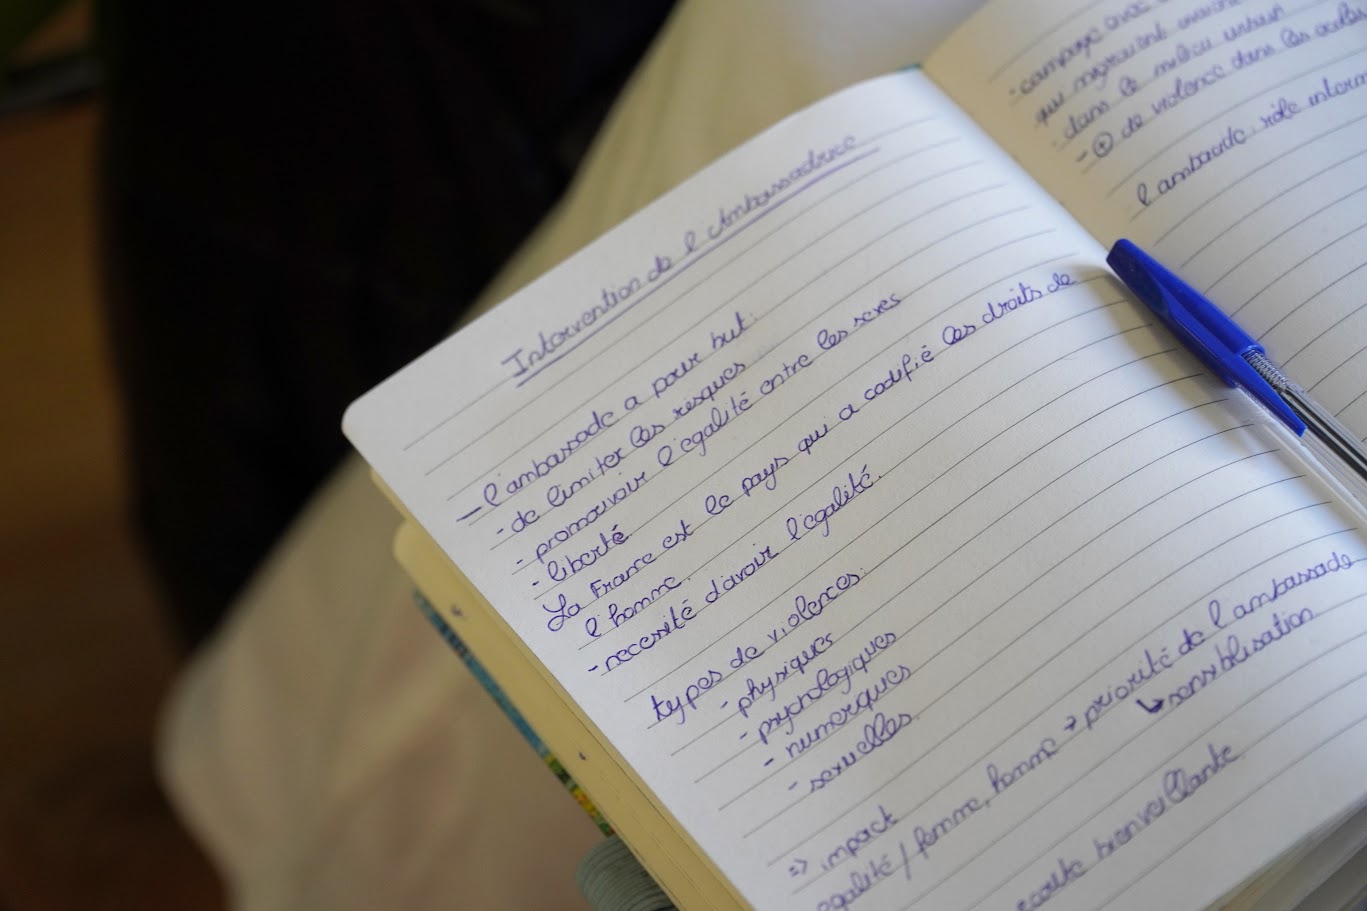 Intervention de l'Ambassadrice
- l'ambassade a pour but:
- de limiter les risques
- promouvoir l'égalité entre les sexes
- liberté
La France est le pays qui a codifié les droits de
l'homme.
- necessité d'avoir l'égalité.
types de violences:
- physiques
- psychologiques
- numériques
- sexuelles.
=> impact
egalité / femme, homme → priorité de l'ambassade
↳ sensiblisation
ecoute bienveillante.
- campagne avec
qui
- dans le milieu urbain
- ⊕ de violence dans les ecoles
l'ambassade: rôle interm